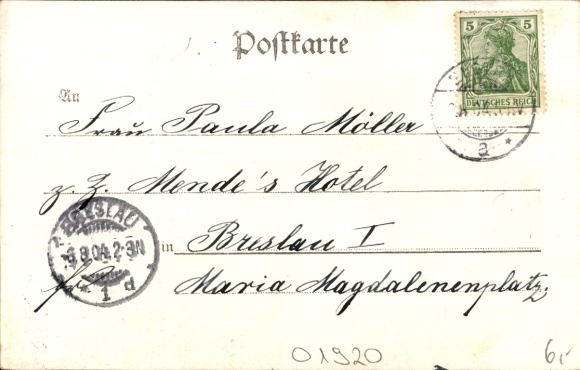 Postkarte
5 5
DEUTSCHES REICH
a *
An
Frau Paula Möller
z. Z. Mende's Hotel
in Breslau I
Maria Magdalenenplatz.
BRESLAU
8.04.2-3N
* 1 d
01920
6,-